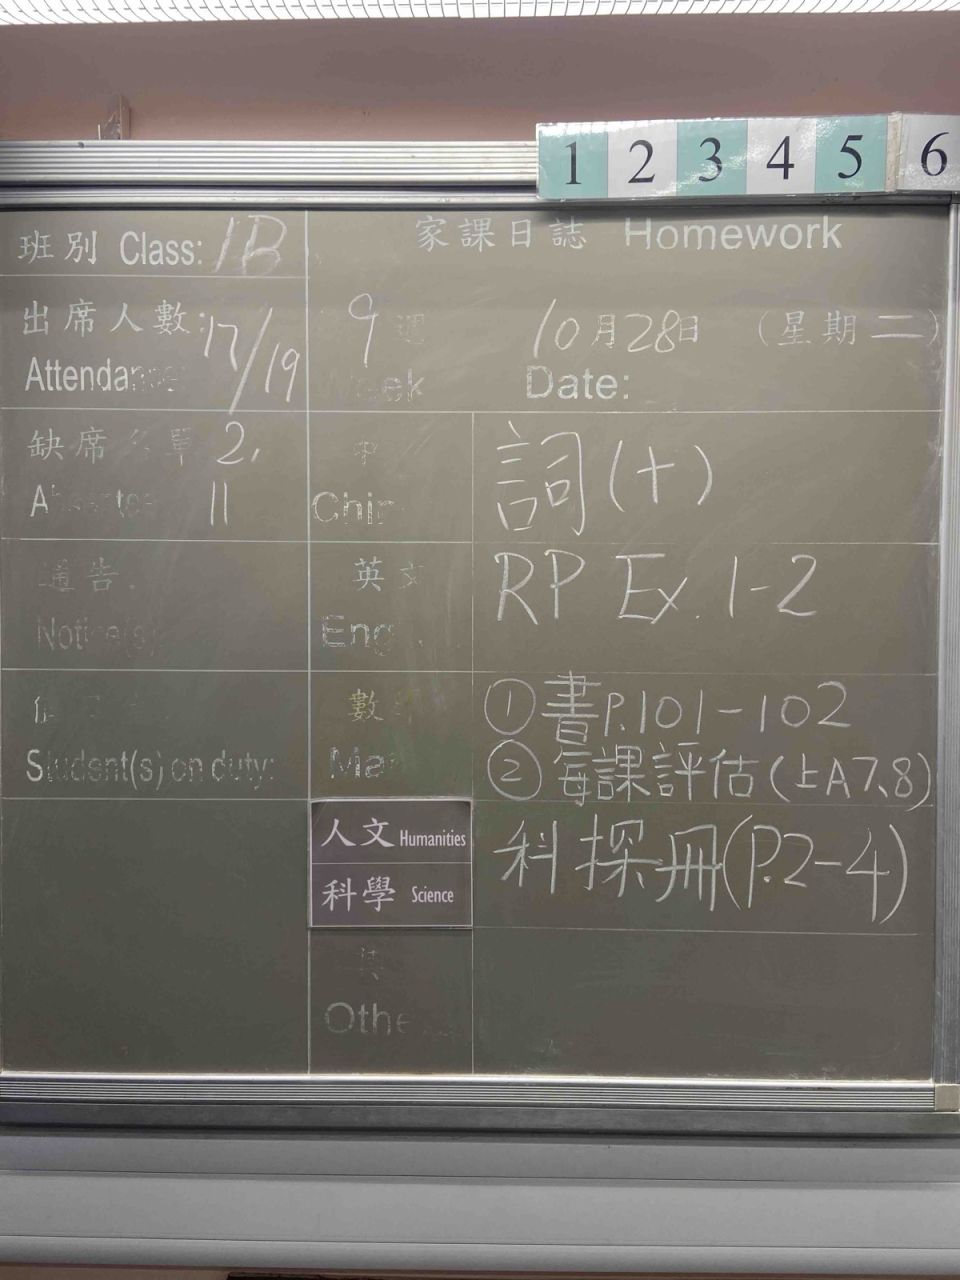 1 2 3 4 5 6
班別 Class: 1B
家課日誌 Homework
出席人數: 17/19
Attendance
9 週
Week
10月28日 (星期二)
Date:
缺席名單 2,
Absentee 11
中
Chin
詞(十)
通告
Notice(s)
英文
Eng
RP Ex. 1-2
Student(s) on duty:
數
Mat
①書P.101-102
②每課評估(上A7、8)
人文 Humanities
科學 Science
科探冊(P.2-4)
其
Othe